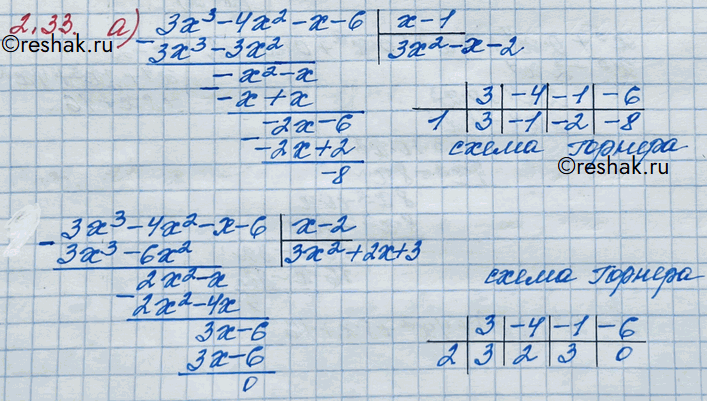 2.33 а) 3x³-4x²-x-6 | x-1
©reshak.ru
- 3x³-3x² | 3x²-x-2
-x²-x
- -x+x
-2x-6
- -2x+2
-8
| 3 | -4 | -1 | -6
1 | 3 | -1 | -2 | -8
схема Горнера
©reshak.ru
3x³-4x²-x-6 | x-2
- 3x³-6x² | 3x²+2x+3
2x²-x
- 2x²-4x
3x-6
3x-6
0
схема Горнера
| 3 | -4 | -1 | -6
2 | 3 | 2 | 3 | 0